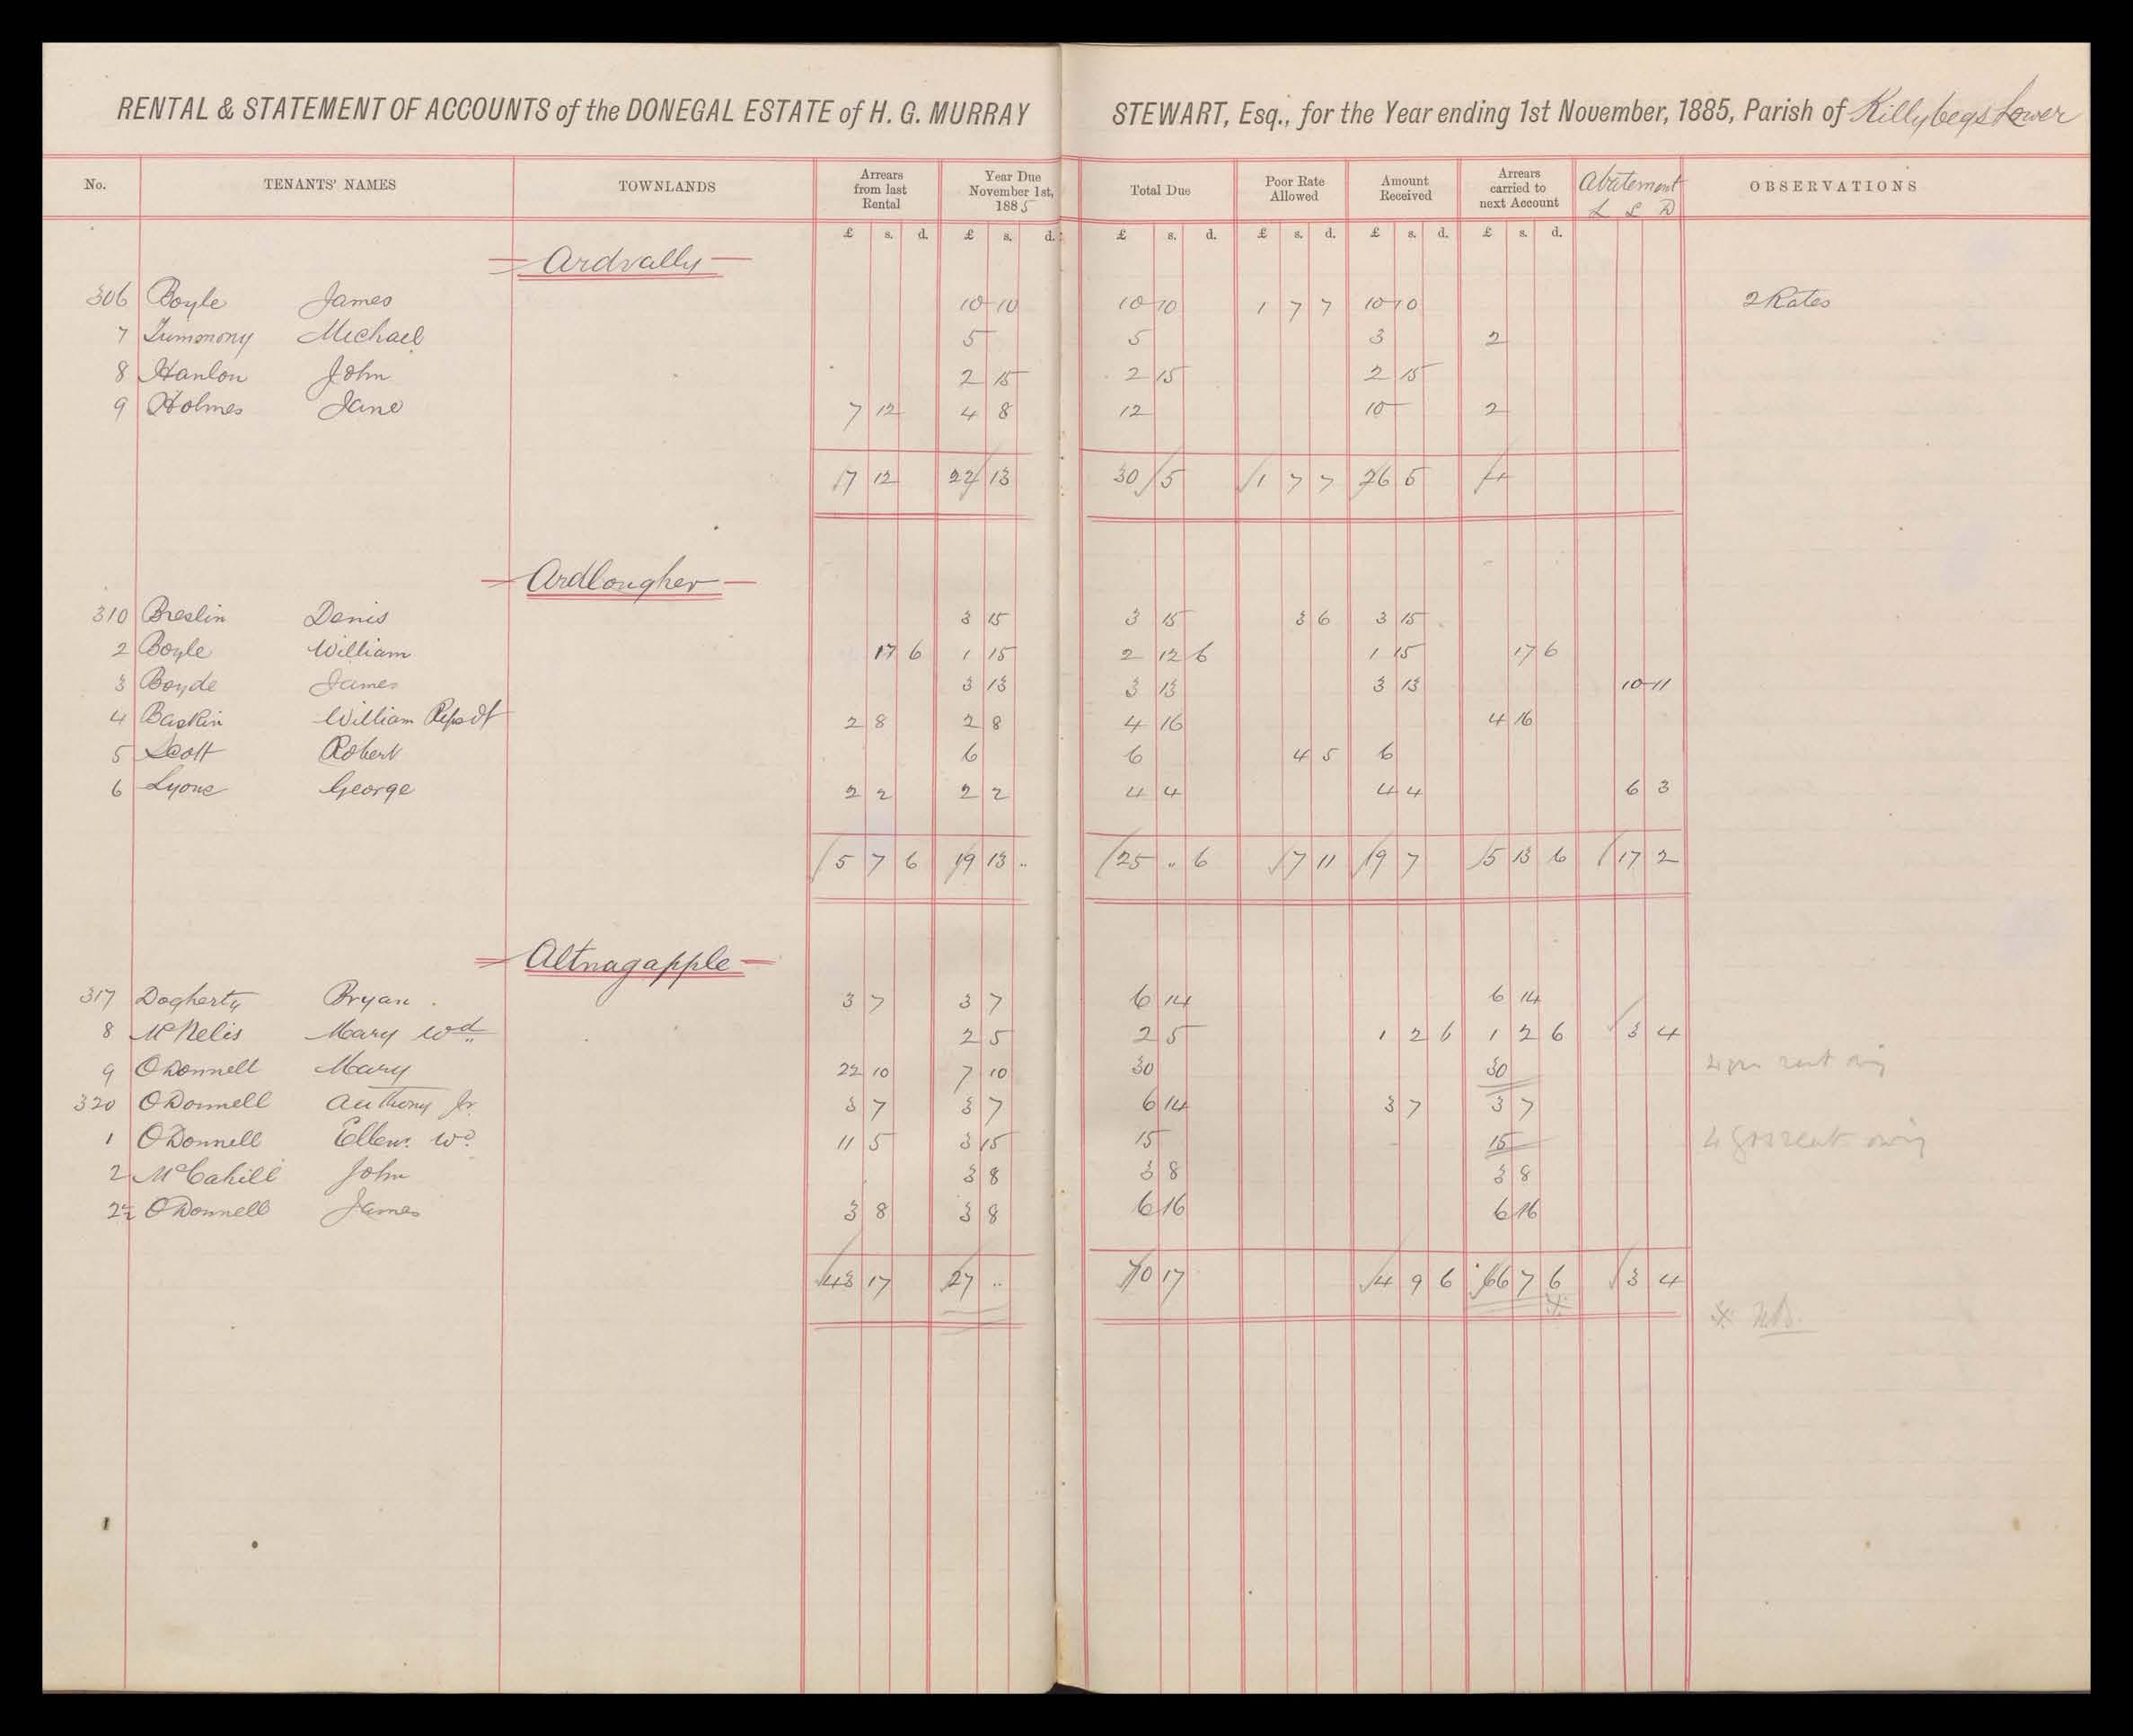 RENTAL & STATEMENT OF ACCOUNTS of the DONEGAL ESTATE of H. G. MURRAY STEWART, Esq., for the Year ending 1st November, 1885, Parish of Killybegs Lower
No. TENANTS' NAMES TOWNLANDS Arrears from last Rental Year Due November 1st, 1885 Total Due Poor Rate Allowed Amount Received Arrears carried to next Account Abatement £ S D OBSERVATIONS
£ s. d. £ s. d. £ s. d. £ s. d. £ s. d. £ s. d.
Ardvally
306 Boyle James 10 10 10 10 1 7 7 10 10 2 Rates
7 Tummony Michael 5 5 3 2
8 Hanlon John 2 15 2 15 2 15
9 Holmes Jane 7 12 4 8 12 10 2
7 12 22 13 30 5 1 7 7 26 5 4
Ardlougher
310 Breslin Denis 3 15 3 15 3 6 3 15
2 Boyle William 17 6 1 15 2 12 6 1 15 17 6
3 Boyde James 3 13 3 13 3 13 10 11
4 Baskin William 2 8 2 8 4 16 4 16
5 Scott Robert 6 6 4 5 6
6 Lyons George 2 2 2 2 4 4 4 4 6 3
5 7 6 19 13 .. 25 .. 6 7 11 19 7 5 13 6 17 2
Altnagapple
317 Dogherty Bryan 3 7 3 7 6 14 6 14
8 McNelis Mary wd 2 5 2 5 1 2 6 1 2 6 3 4
9 O'Donnell Mary 22 10 7 10 30 30 rent owing
320 O'Donnell Anthony Jr. 3 7 3 7 6 14 3 7 3 7
1 O'Donnell Ellen wd 11 5 3 15 15 15 4 yrs rent owing
2 McCahill John 3 8 3 8 3 8
2½ O'Donnell James 3 8 3 8 6 16 6 16
43 17 27 .. 70 17 4 9 6 66 7 6 3 4